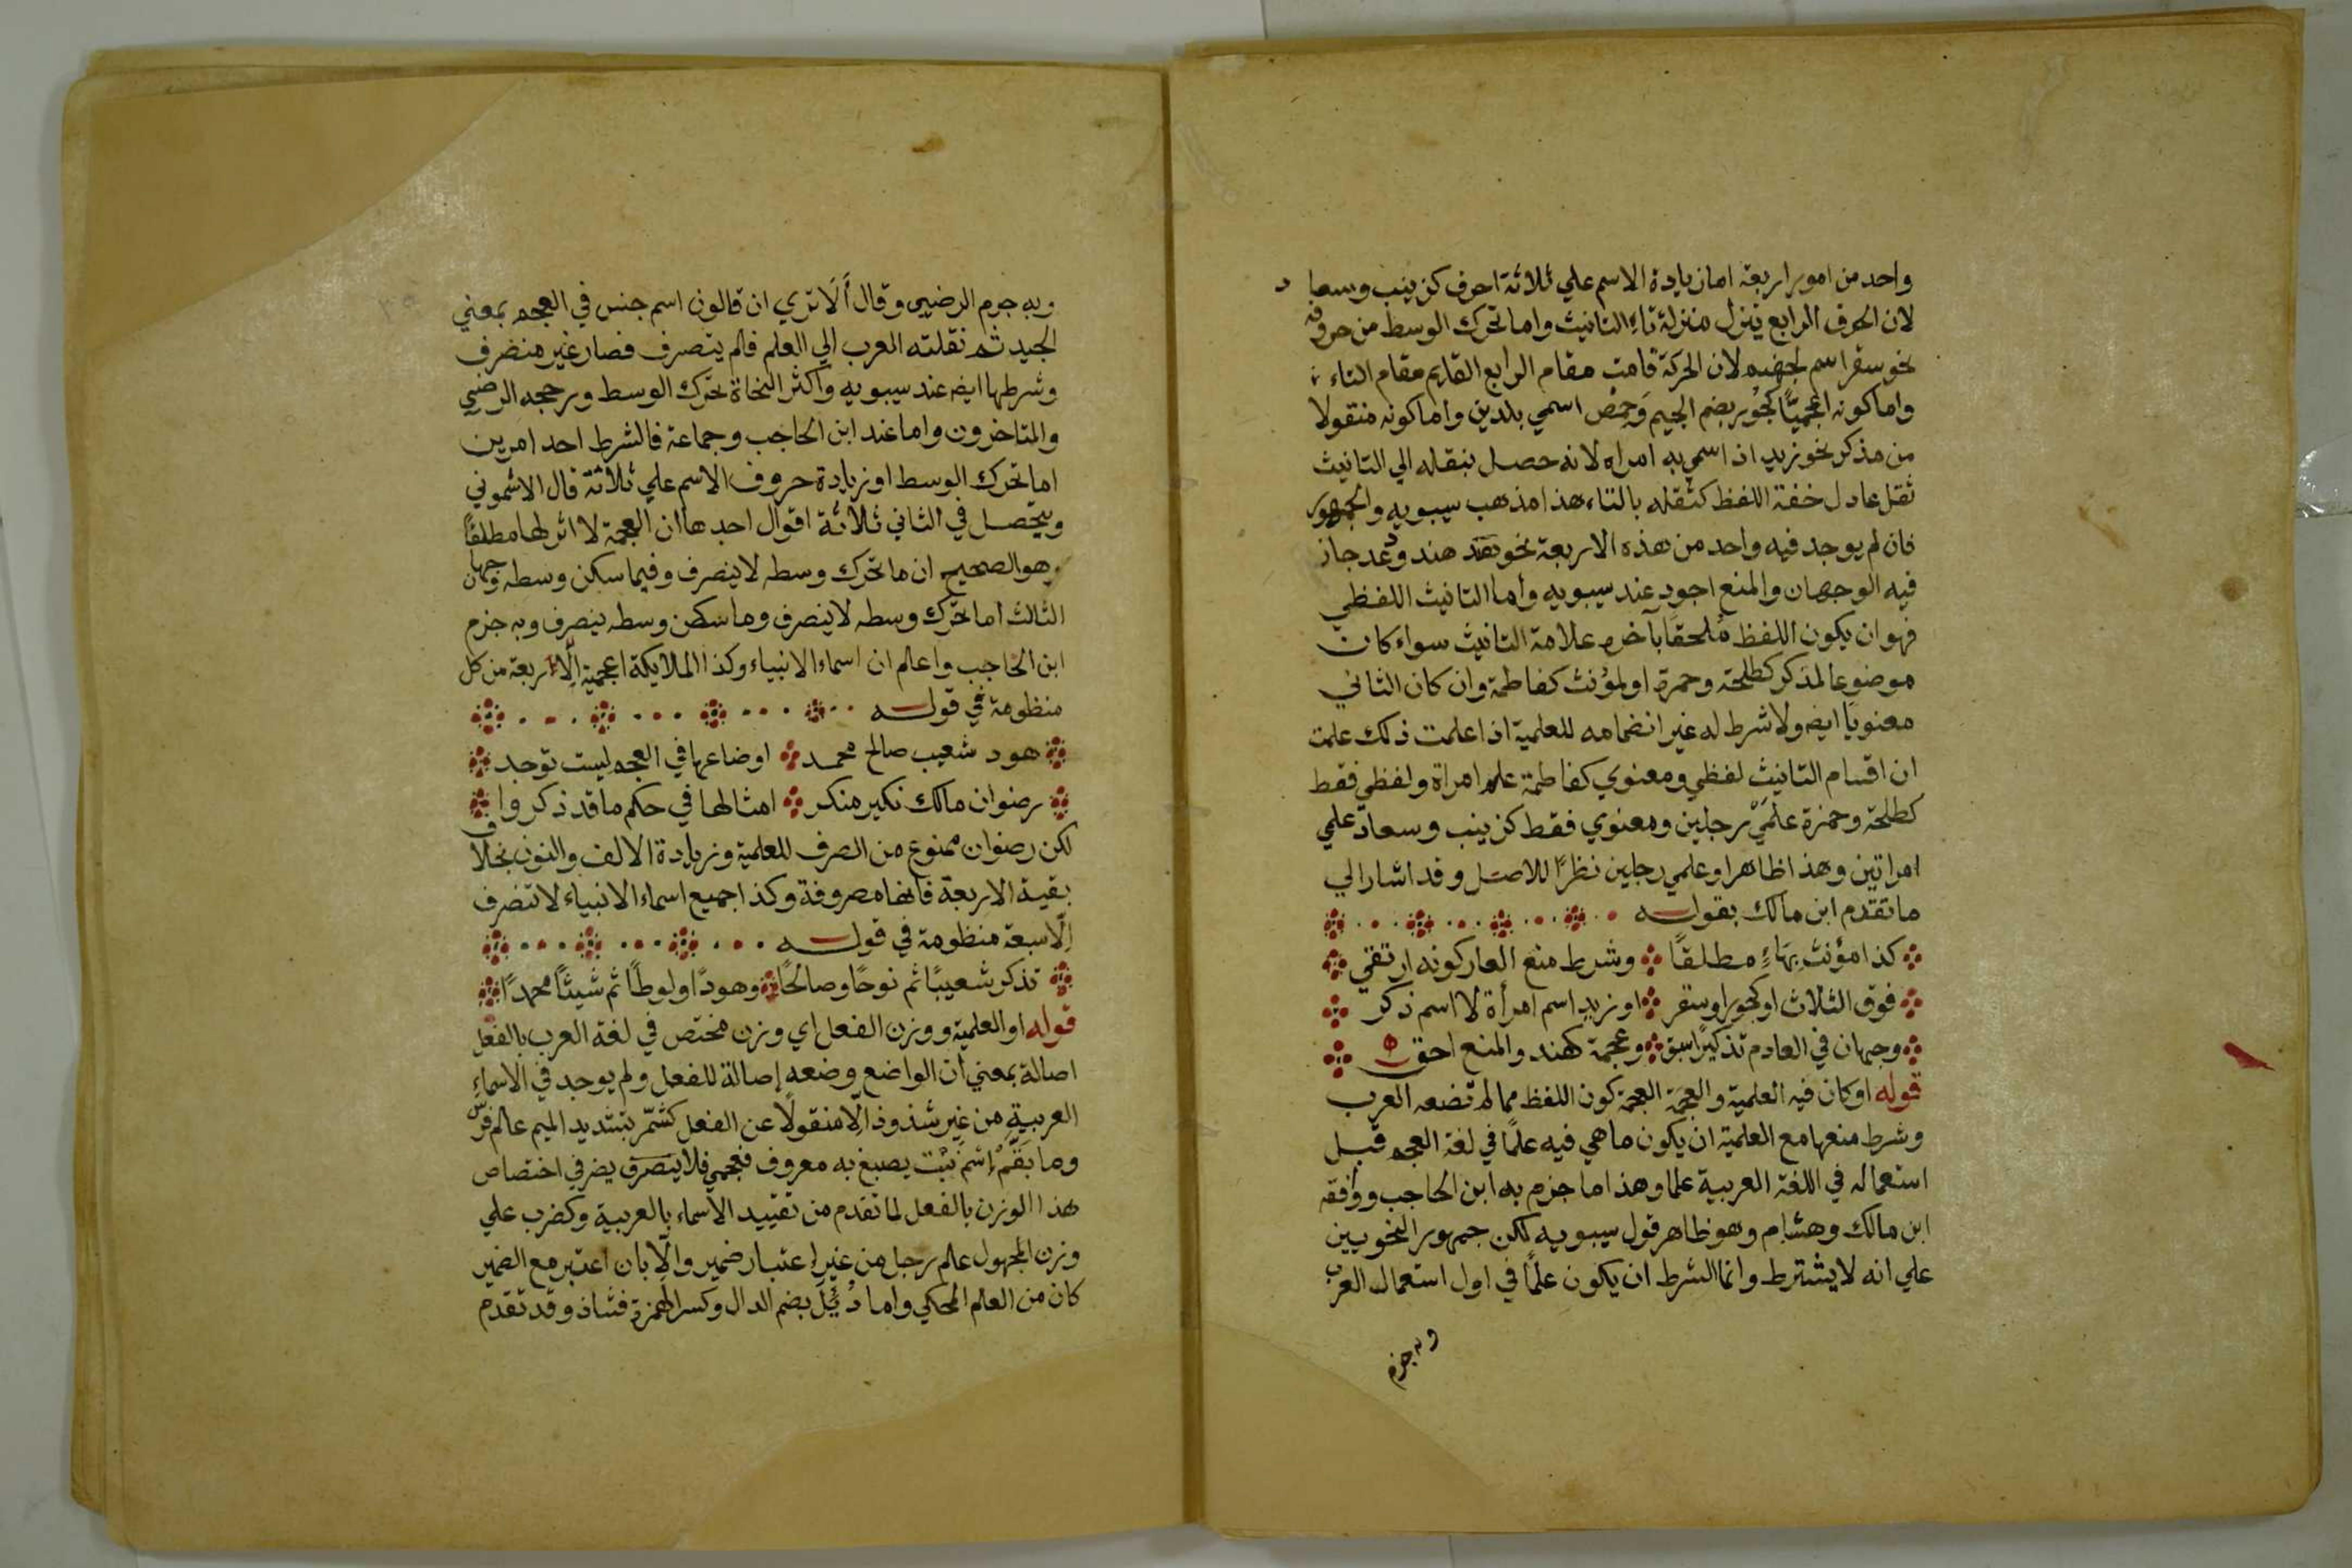 واحد من امور اربعة اما زيادة الاسم علي ثلاثة احرف كزينب وسعاد
لان الحرف الرابع ينزل منزلة تاءِ التانيث واما تحرك الوسط من حروفه
نحو سقر اسم لجهنم لان الحركة قامت مقام الرابع القايم مقام التاء
واما كونه اعجميًّا كجُور بضم الجيم وَحِمْص اسمي بلدين واما كونه منقولا
من مذكر نحو زيد اذا سمي به امراه لانه حصل بنقله الي التانيث
ثقل عادل خفة اللفظ كثقله بالتاء هذا مذهب سيبويه والجمهور
فان لم يوجد فيه واحد من هذه الاربعة نحو هند ودعد جاز
فيه الوجهان والمنع اجود عند سيبويه وأما التانيث اللفظي
فهو ان يكون اللفظ مُلحقًا بآخره علامة التانيث سواء كان
موضوعا لمذكر كطلحة وحمزة او لمؤنث كفاطمة وان كان الثاني
معنويًا ايضه ولا شرط له غير انضمامه للعلمية اذا علمت ذلك علمت
ان اقسام التانيث لفظي ومعنوي كفاطمة علم امراة ولفظي فقط
كطلحة وحمزة علَمَيْ رجلين ومعنوي فقط كزينب وسعاد علمي
امراتين وهذا ظاهر او علمي رجلين نظرًا للاصل وقد اشار الي
ما تقدم ابن مالك بقوله
كذا مؤنث بِهَاءٍ مطلقًا وشرط منع العار كونه ارتقي
فوق الثلاث او كجور او سقر او زيد اسم امرأة لا اسم ذكر
وجهان في العادم تذكيرًا سبق وعجمة كهند والمنع احق
قوله او كان فيه العلمية والعجمة العجمة كون اللفظ مما لم تضعه العرب
وشرط منعها مع العلمية ان يكون ما هي فيه علمًا في لغة العجم قبل
استعماله في اللغة العربية علما وهذا ما جزم به ابن الحاجب ووافقه
ابن مالك وهشام وهو ظاهر قول سيبويه لكن جمهور النحويين
علي انه لا يشترط وانما الشرط ان يكون علمًا في اول استعمال العرب
وبه جزم
وبه جزم الرضيي وقال أَلَا تري ان قالون اسم جنس في العجم بمعني
الجيد ثم نقلته العرب الي العلم فلم يتصرف فصار غير منصرف
وشرطها ايضه عند سيبويه وأكثر النحاة تحرك الوسط ورجحه الرضي
والمتاخرون واما عند ابن الحاجب وجماعة فالشرط احد امرين
اما تحرك الوسط او زيادة حروف الاسم علي ثلاثة قال الاشموني
ويتحصل في الثاني ثلاثة اقوال احدها ان العجمة لا اثر لها مطلقًا
وهو الصحيح ان ما تحرك وسطه لا ينصرف وفيما سكن وسطه وجهان
الثالث اما تحرك وسطه لا ينصرف وما سكن وسطه ينصرف وبه جزم
ابن الحاجب واعلم ان اسماء الانبياء وكذا الملايكة اعجمية إلّا اربعة من كل
منظومة في قوله
هود شعيب صالح محمد اوضاعها في العجم ليست توجد
رضوان مالك نكير منكر امثالها في حكم ما قد ذكروا
لكن رضوان ممنوع من الصرف للعلمية وزيادة الالف والنون بخلاف
بقية الاربعة فانها مصروفة وكذا جميع اسماء الانبياء لا تنصرف
إلّا سبعة منظومة في قوله
تذكر شعيبًا ثم نوحًا وصالحًا وهودًا ولوطًا ثم شيثًا محمدًا
قوله او العلمية ووزن الفعل اي وزن مختص في لغة العرب بالفعل
اصالة بمعني أن الواضع وضعه إصالة للفعل ولم يوجد في الاسماءِ
العربية من غير شذوذ الّا منقولًا عن الفعل كشمّر بتشديد الميم علم فرس
وما بَقَّمْ إسْم نَبْت يصبغ به معروف فعجمي فلا يتصرق يضر في اختصاص
هذا الوزن بالفعل لما تقدم من تقييد الاسماء بالعربية وكضرب علي
وزن المجهول علم رجل من غير اعتبار ضمير والّا بان اعتبر مع الضمير
كان من العلم المحكي واما دُئِلَ بضم الدال وكسر الهمزة فشاذ وقد تقدم